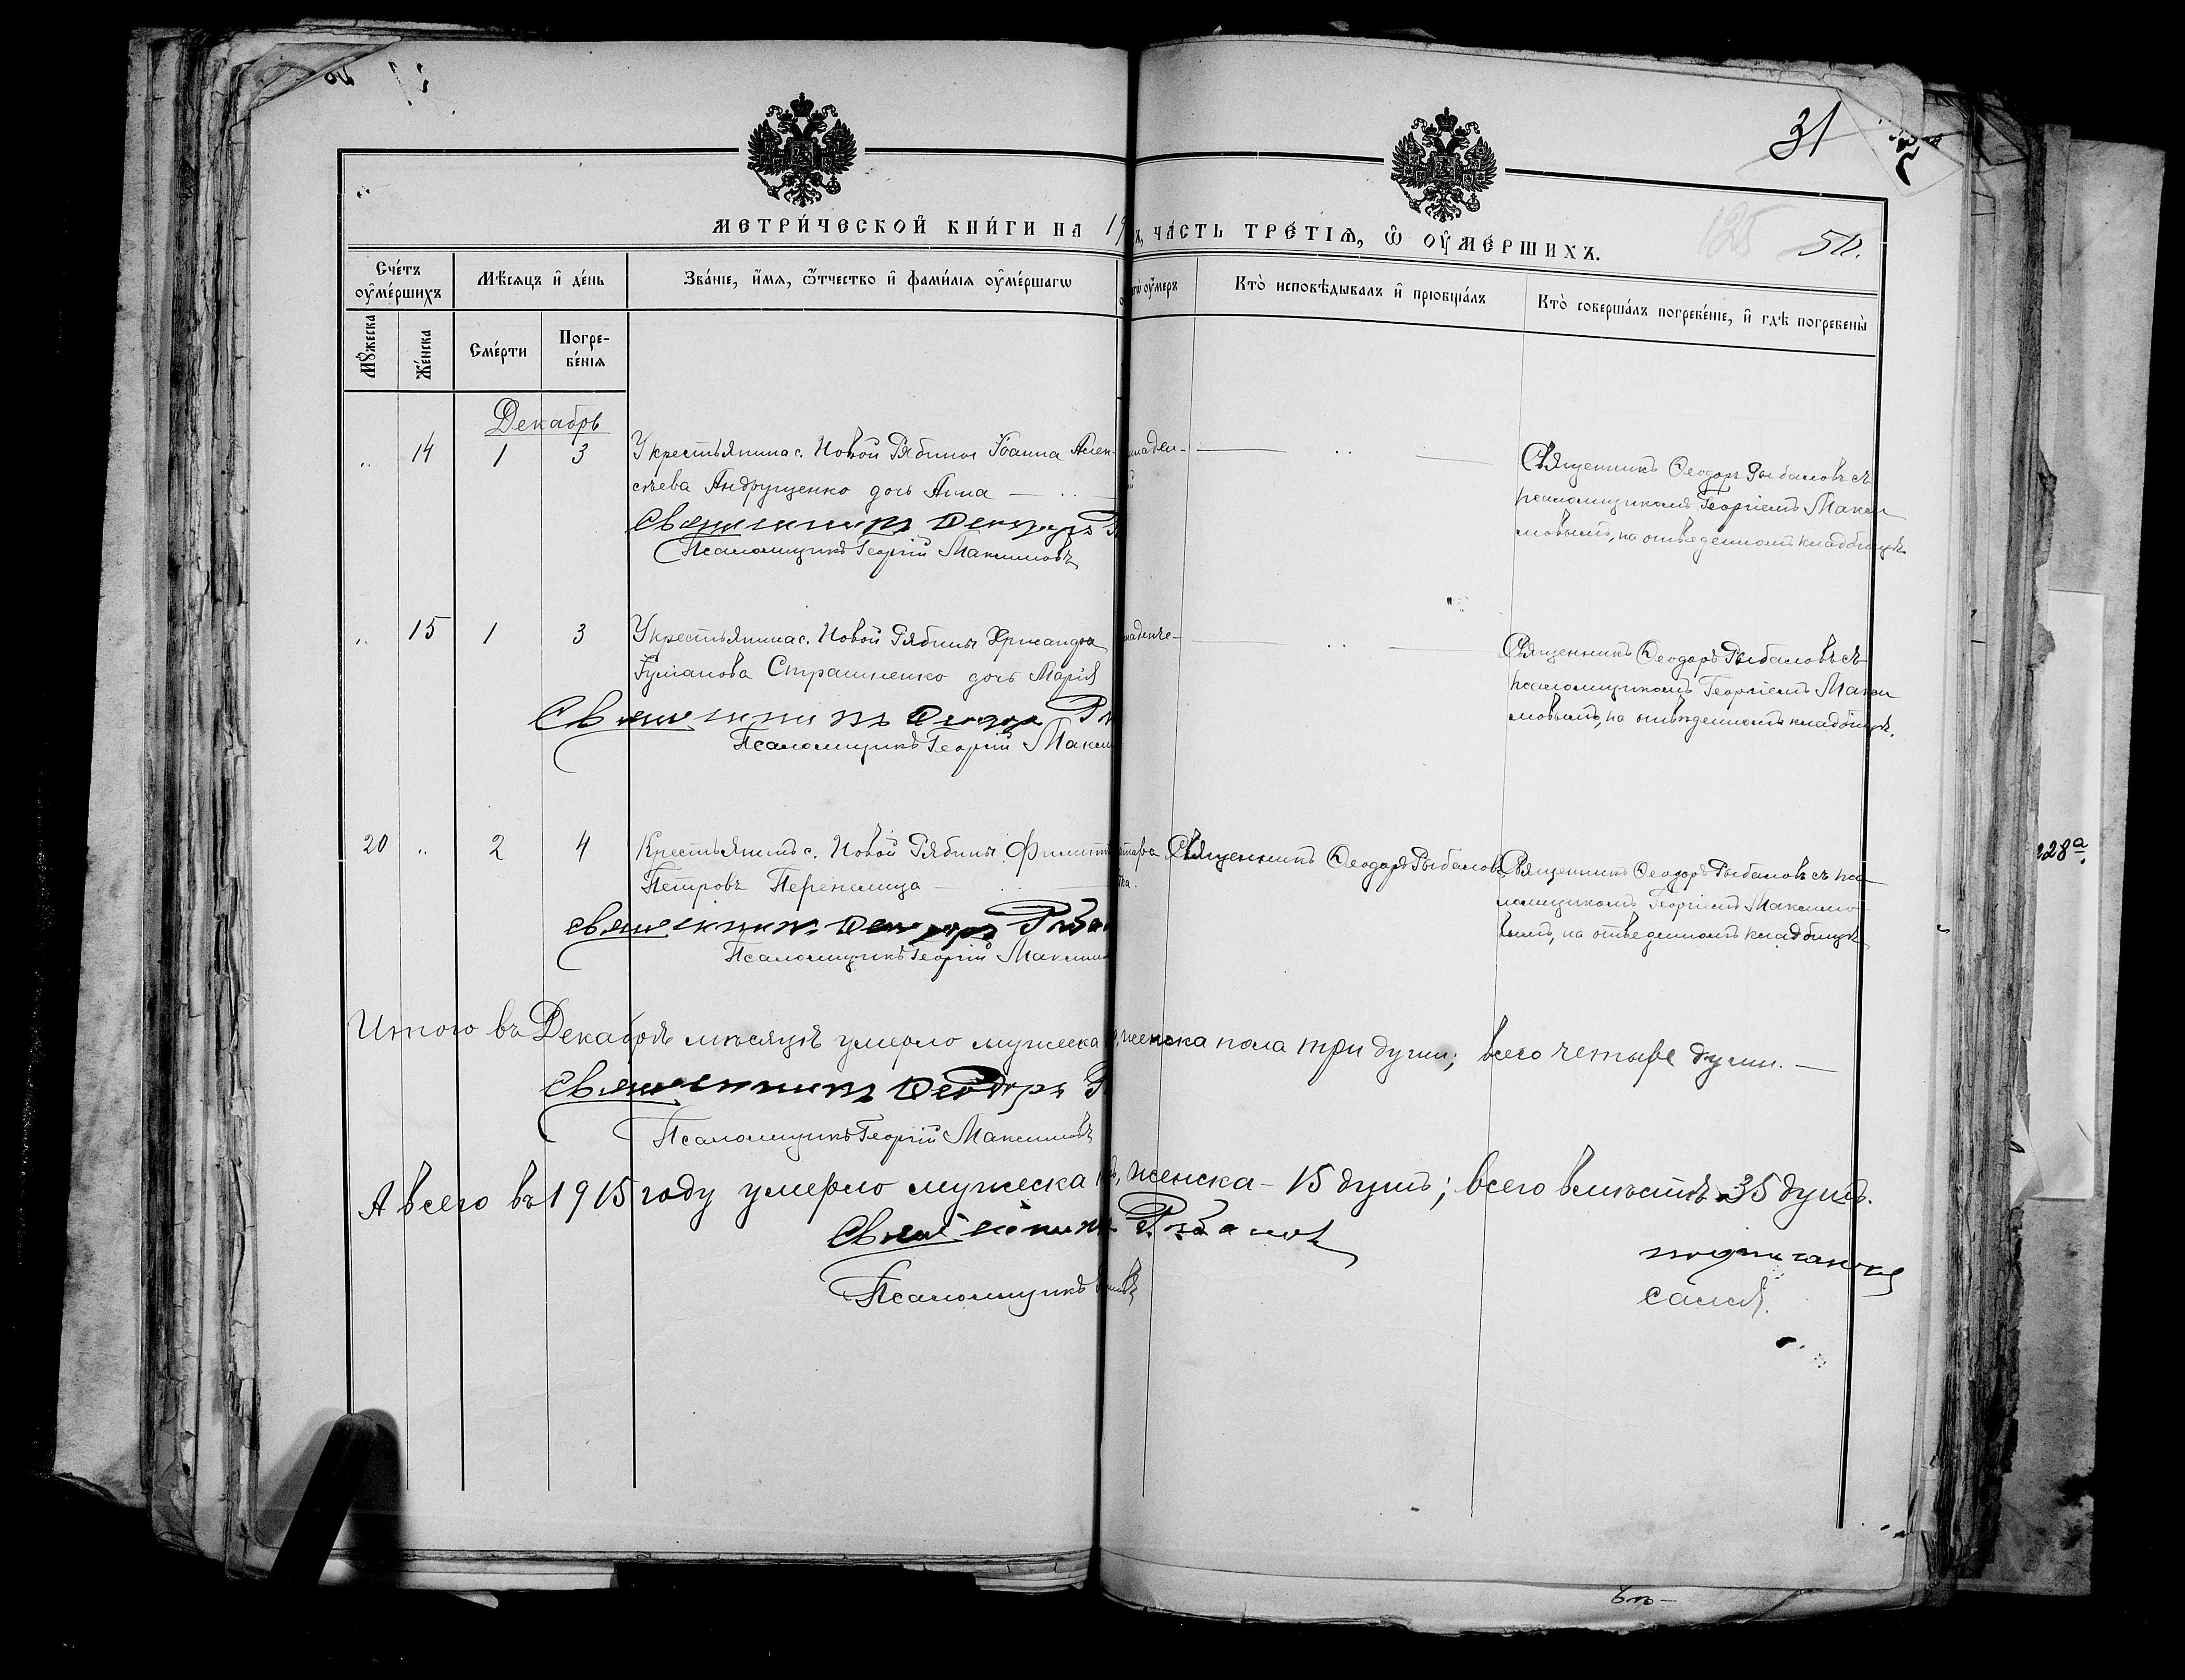 31
125
50.
МЕТРИ́ЧЕСКОЙ КНИ́ГИ НА 19
ЧА́СТЬ ТРЕ́ТІѦ, Ѿ ОУ҆МЕ́РШИХЪ.
Сче́тъ оу҆ме́ршихъ
Мѣ́сяцъ и҆ де́нь
Зва́ніе, и҆́мя, ѻ҆́тчество и҆ фами́лія оу҆ме́ршагѡ
оу҆́меръ
Кто̀ исповѣ́дывалъ и҆ прїобща́лъ
Кто̀ соверша́лъ погребе́ніе, и҆ гдѣ̀ погребены̀
Мꙋ́жеска
Же́нска
Сме́рти
Погребе́нія
Декабрь
14 1 3 У крестьянина с. Новой Рябины Іоанна Алек-
сѣева Андрущенко дочь Анна
Священникъ Ѳеодоръ
Псаломщикъ Георгій Максимовъ
Священникъ Ѳеодоръ Рыбаловъ съ
псаломщикомъ Георгіемъ Макси
мовымъ, на отведенномъ кладбищѣ
15 1 3 У крестьянина с. Новой Рябины
Страшненко дочь Марія
Священникъ Ѳеодоръ
Псаломщикъ Георгій Макси
Священникъ Ѳеодоръ Рыбаловъ съ
псаломщикомъ Георгіемъ Макси
мовымъ, на отведенномъ кладбищѣ.
20 2 4 Крестьянинъ с. Новой Рябины
Петровъ Перепелица
Священникъ Ѳеодоръ Рыба
Псаломщикъ Георгій Макси
Священникъ Ѳеодоръ Рыбаловъ
Священникъ Ѳеодоръ Рыбаловъ съ пса
ломщикомъ Георгіемъ Максимо
вымъ, на отведенномъ кладбищѣ
228а
Итого въ Декабрѣ мѣсяцѣ умерло мужеска женска пола три души; всего четыре души.
Священникъ Ѳеодоръ
Псаломщикъ Георгій Максимовъ
А всего въ 1915 году умерло мужеска женска - 15 душъ; всего вмѣстѣ 35 душъ.
Священникъ Рыбалов
Псаломщикъ